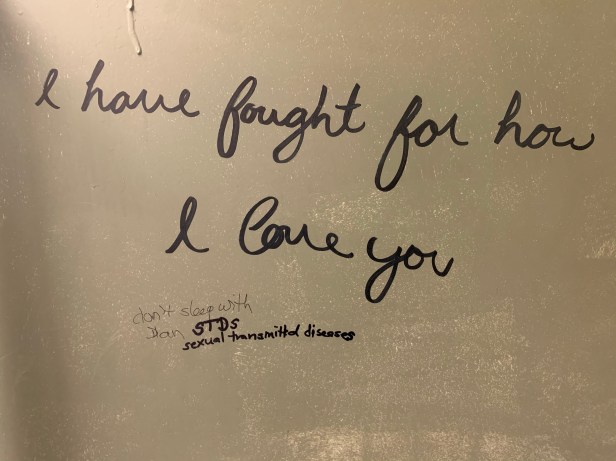 I have fought for how
I love you
don't sleep with
Dan STDs
sexual transmittd diseases